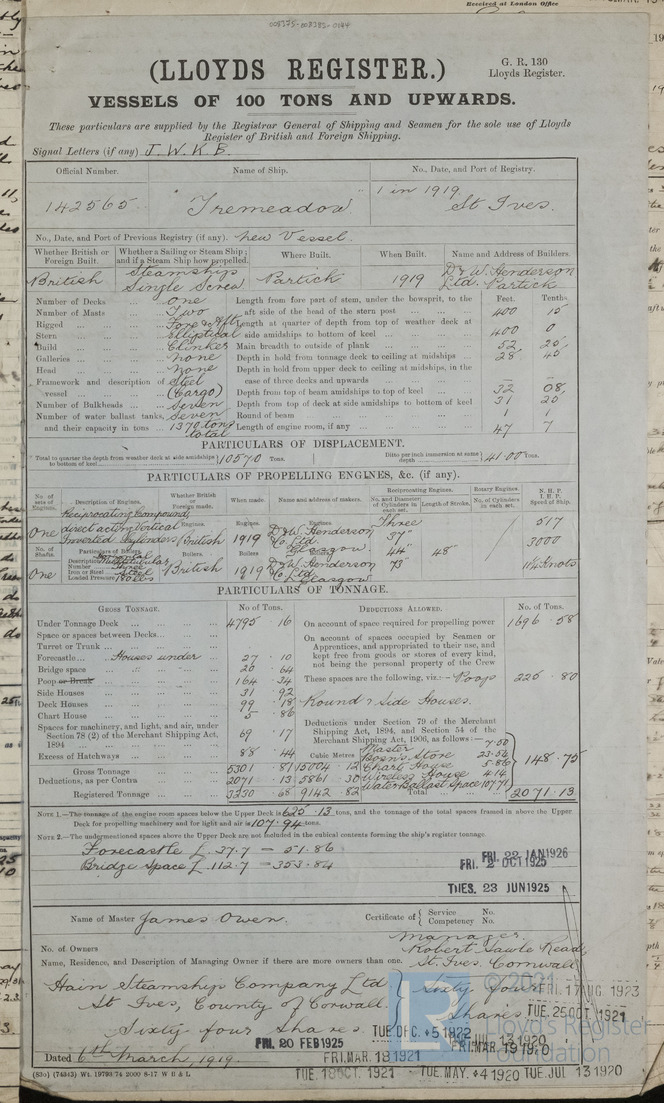 Received at London Office
005375-003282-0174
(LLOYDS REGISTER.)
G. R. 130
Lloyds Register.
VESSELS OF 100 TONS AND UPWARDS.
These particulars are supplied by the Registrar General of Shipping and Seamen for the sole use of Lloyds
Register of British and Foreign Shipping.
Signal Letters (if any) J. W. K. B.
Official Number. Name of Ship. No., Date, and Port of Registry.
142565 "Tremeadow" 1 in 1919 St Ives.
No., Date, and Port of Previous Registry (if any). New Vessel.
Whether British or Foreign Built. Whether a Sailing or Steam Ship; and if a Steam Ship how propelled. Where Built. When Built. Name and Address of Builders.
British Steamship Single Screw Partick 1919 D & W. Henderson Ltd. Partick
Number of Decks One
Number of Masts Two
Rigged Fore & aft
Stern Elliptical
Build Clinker
Galleries None
Head None
Framework and description of vessel Steel (Cargo)
Number of Bulkheads Seven
Number of water ballast tanks, and their capacity in tons Seven 1370 tons total
Feet. Tenths.
Length from fore part of stem, under the bowsprit, to the aft side of the head of the stern post 400 15
Length at quarter of depth from top of weather deck at side amidships to bottom of keel 400 0
Main breadth to outside of plank 52 25
Depth in hold from tonnage deck to ceiling at midships 28 40
Depth in hold from upper deck to ceiling at midships, in the case of three decks and upwards
Depth from top of beam amidships to top of keel 32 08
Depth from top of deck at side amidships to bottom of keel 31 20
Round of beam 1 1
Length of engine room, if any 47 7
PARTICULARS OF DISPLACEMENT.
Total to quarter the depth from weather deck at side amidships to bottom of keel 10570 Tons. Ditto per inch immersion at same depth 41.00 Tons.
PARTICULARS OF PROPELLING ENGINES, &c. (if any).
No. of sets of Engines. Description of Engines. Whether British or Foreign made. When made. Name and address of makers. Reciprocating Engines. No. and Diameter of Cylinders in each set. Length of Stroke. Rotary Engines. No. of Cylinders in each set. N.H.P. I.H.P. Speed of Ship.
One Reciprocating Compound direct acting Vertical Inverted Cylinders Engines. British Engines. 1919 Engines. D & W Henderson & Co. Ltd. Glasgow. Three 37" 44" 73" 48" 517 3000
No. of Shafts. Particulars of Boilers. Description Number Iron or Steel Loaded Pressure
One Horizontal Multitubular Three Steel 180 lbs Boilers. British Boilers 1919 D & W. Henderson & Co Ltd Glasgow Knots
PARTICULARS OF TONNAGE.
GROSS TONNAGE. No of Tons. DEDUCTIONS ALLOWED. No. of Tons.
Under Tonnage Deck 4795 .16
Space or spaces between Decks
Turret or Trunk
Forecastle Houses under 27 .10
Bridge space 26 .64
Poop or Break 164 .34
Side Houses 31 92
Deck Houses 99 .18
Chart House 5 .86
Spaces for machinery, and light, and air, under Section 78 (2) of the Merchant Shipping Act, 1894 69 .17
Excess of Hatchways 88 .44
Cubic Metres
Gross Tonnage 5301 .81 15004 .12
Deductions, as per Contra 2071 .13 5861 .30
Registered Tonnage 3230 .68 9142 .82
On account of space required for propelling power 1696 .58
On account of spaces occupied by Seamen or Apprentices, and appropriated to their use, and kept free from goods or stores of every kind, not being the personal property of the Crew
These spaces are the following, viz.:— Poop 225 .80
Round & Side Houses.
Deductions under Section 79 of the Merchant Shipping Act, 1894, and Section 54 of the Merchant Shipping Act, 1906, as follows:—
Master 7.50
Bosn's Store 23.54
Chart House 5.86
Wireless House 4.14
Water Ballast Space 107.71
148 .75
Total 2071 .13
NOTE 1.—The tonnage of the engine room spaces below the Upper Deck is 625.13 tons, and the tonnage of the total spaces framed in above the Upper Deck for propelling machinery and for light and air is 107.94 tons.
NOTE 2.—The undermentioned spaces above the Upper Deck are not included in the cubical contents forming the ship's register tonnage.
Forecastle L 37.7 = 51.86
Bridge Space L 112.7 = 353.84
FRI. 22 JAN 1926
FRI. 2 OCT 1925
TUES. 23 JUN 1925
Name of Master James Owen. Certificate of { Service No. Competency No.
No. of Owners
Manager Robert Sawle Read, St. Ives. Cornwall
Name, Residence, and Description of Managing Owner if there are more owners than one.
Hain Steamship Company Ltd } Sixty four
St Ives, County of Cornwall. } Shares
Sixty four Shares.
FRI. 17 AUG 1923
TUE. 25 OCT 1921
TUE DEC. *5 1922
FRI. 20 FEB 1925
FRI. MAR 19 1920
Dated 6th March, 1919.
FRI. MAR. 18 1921
(83o) (74943) Wt. 19793/74 2000 8-17 W B & L
TUE. 18 OCT. 1921
TUE. MAY. *4 1920
TUE. JUL 13 1920
Lloyd's Register
Foundation